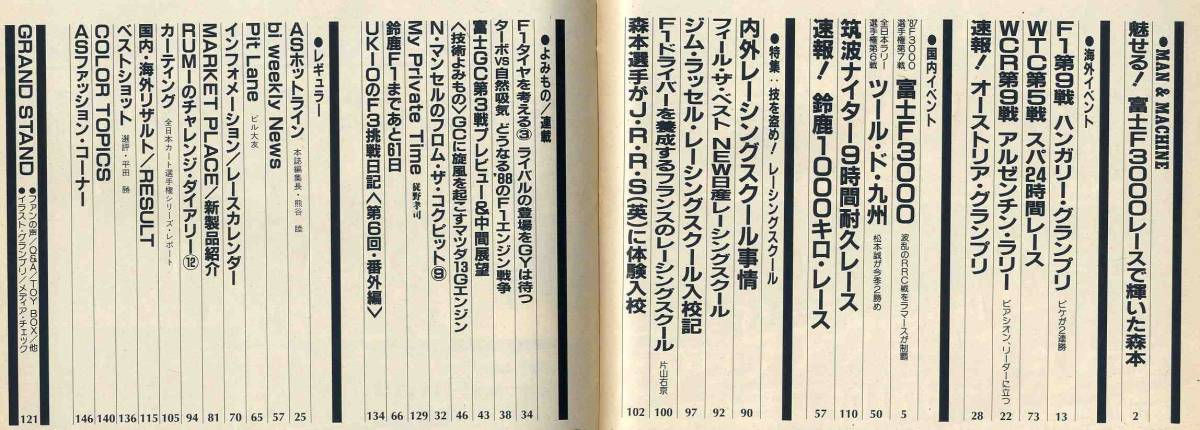 ●MAN & MACHINE
魅せる! 富士F3000レースで輝いた森本 2
●海外イベント
F1第9戦 ハンガリー・グランプリ ピケが2連勝 13
WTC第5戦 スパ24時間レース 73
WCR第9戦 アルゼンチン・ラリー ビアシオン、リーダーに立つ 22
速報! オーストリア・グランプリ 28
●国内イベント
'87F3000選手権第7戦 富士F3000 波乱のRRC戦をラマースが制覇 5
全日本ラリー選手権第6戦 ツール・ド・九州 松本誠が今季2勝め 50
筑波ナイター9時間耐久レース 110
速報! 鈴鹿1000キロ・レース 57
●特集:技を盗め! レーシングスクール
内外レーシングスクール事情 90
フィール・ザ・ベスト NEW日産レーシングスクール 92
ジム・ラッセル・レーシングスクール入校記 97
F1ドライバーを養成するフランスのレーシングスクール 片山右京 100
森本選手がJ・R・R・S(英)に体験入校 102
●よみもの/連載
F1タイヤを考える③ ライバルの登場をGYは待つ 34
ターボvs自然吸気 どうなる'88のF1エンジン戦争 38
富士GC第3戦プレビュー&中間展望 43
〈技術よみもの〉GCに旋風を起こすマツダ13Gエンジン 46
N・マンセルのフロム・ザ・コクピット⑨ 32
My Private Time 従野孝司 129
鈴鹿F1まであと61日 66
UKIOのF3挑戦日記〈第6回・番外編〉 134
●レギュラー
ASホットライン 本誌編集長・熊谷 睦 25
bi weekly News 57
Pit Lane ビル大友 65
インフォメーション/レースカレンダー 70
MARKET PLACE/新製品紹介 81
RUMIのチャレンジ・ダイアリー⑫ 94
カーティング 全日本カート選手権シリーズ・レポート 105
国内・海外リザルト/RESULT 115
ベストショット 選評・平田 勝 136
COLOR TOPICS 140
ASファッション・コーナー 146
GRAND STAND ●ファンの声/Q&A/TOY BOX/他 ●イラスト・グランプリ/メディア・チェック 121